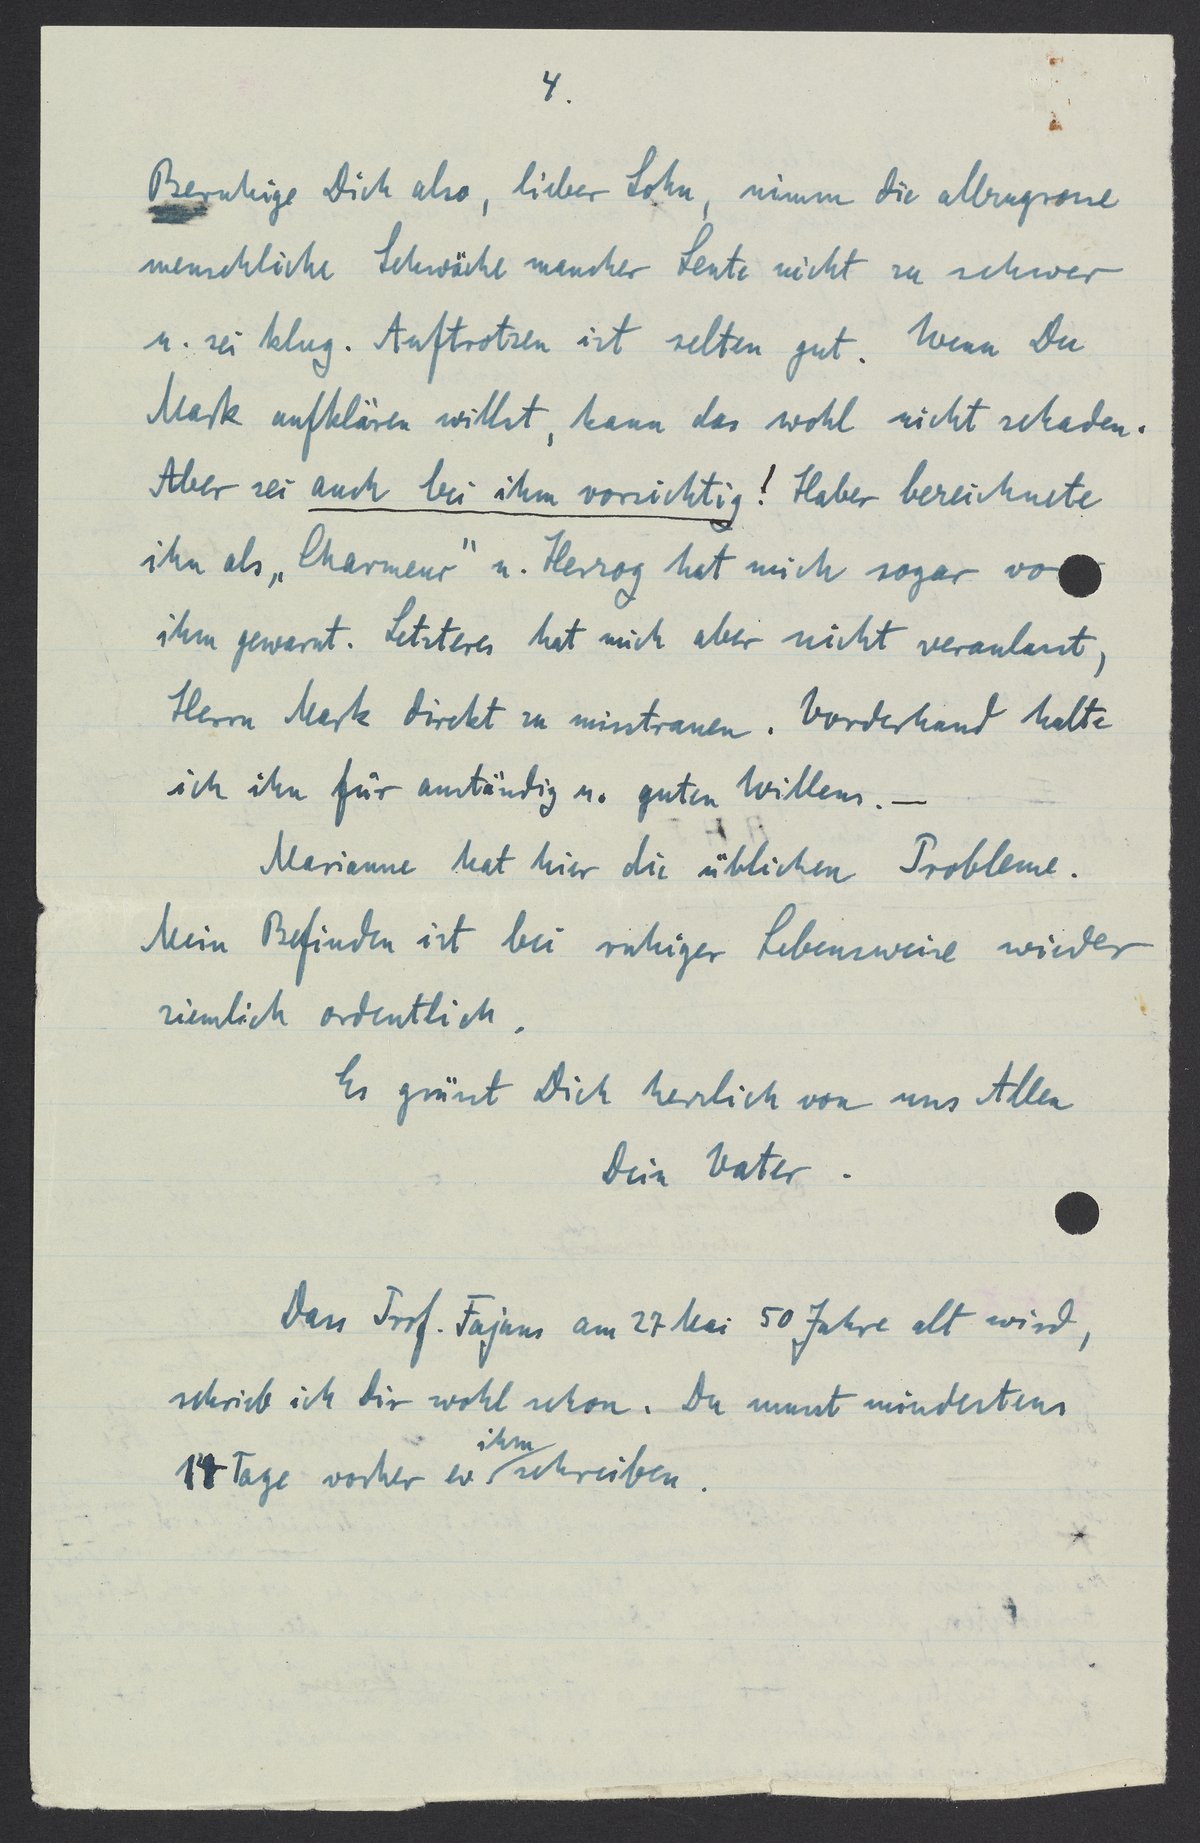 4.
Beruhige Dich also, lieber Sohn, nimm die allzugrosse
menschliche Schwäche mancher Leute nicht zu schwer
u. sei klug. Auftrotzen ist selten gut. Wenn Du
Mark aufklären willst, kann das wohl nicht schaden.
Aber sei auch bei ihm vorsichtig! Haber bezeichnete
ihn als „Charmeur" u. Herzog hat mich sogar vo
ihm gewarnt. Letzteres hat mich aber nicht veranlasst,
Herrn Mark direkt zu misstrauen. Vorderhand halte
ich ihn für anständig u. guten Willens. —
Marianne hat hier die üblichen Probleme.
Mein Befinden ist bei ruhiger Lebensweise wieder
ziemlich ordentlich.
Es grüsst Dich herzlich von uns Allen
Dein Vater.
Dass Prof. Fajans am 27 Mai 50 Jahre alt wird,
schrieb ich Dir wohl schon. Du musst mindestens
14 Tage vorher ihm schreiben.